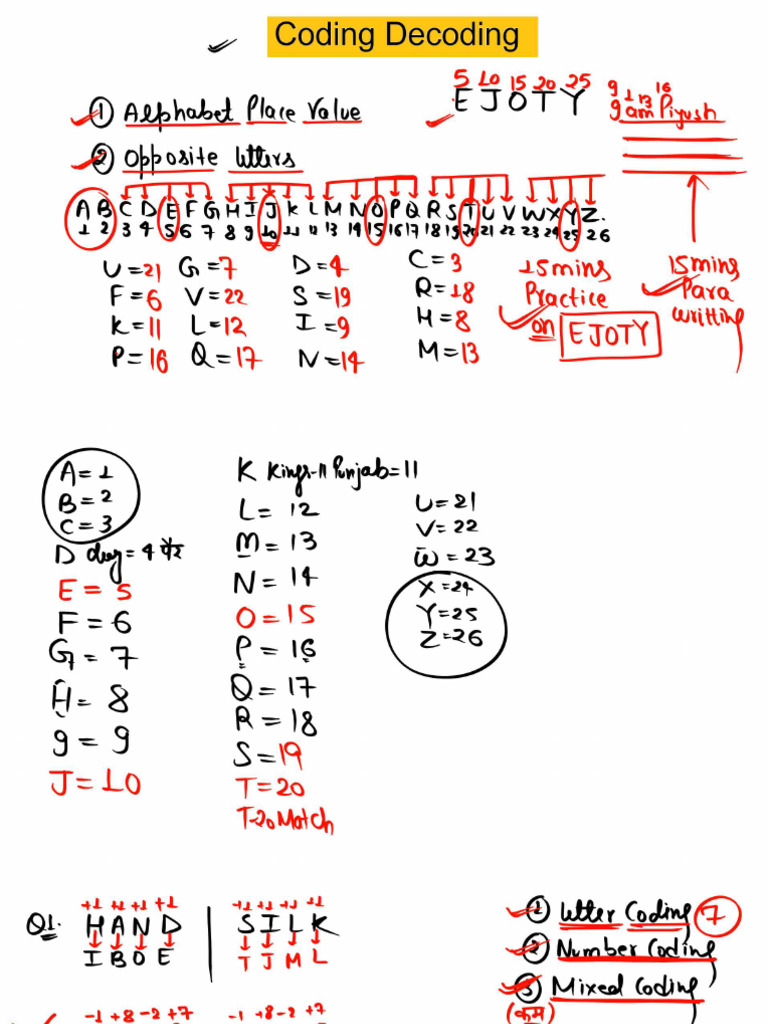 Coding Decoding
① Alphabet Place Value
5 10 15 20 25
E J O T Y
9 1 13 16
9 am Piyush
② Opposite letters
A B C D E F G H I J K L M N O P Q R S T U V W X Y Z.
1 2 3 4 5 6 7 8 9 10 11 12 13 14 15 16 17 18 19 20 21 22 23 24 25 26
U = 21 G = 7 D = 4 C = 3
F = 6 V = 22 S = 19 R = 18
K = 11 L = 12 I = 9 H = 8
P = 16 Q = 17 N = 14 M = 13
15 mins
Practice
on EJOTY
15 mins
Para
writting
A = 1
B = 2
C = 3
E = 5
F = 6
G = 7
H = 8
9 = 9
J = 10
K Kings-11 Punjab = 11
L = 12
M = 13
N = 14
O = 15
P = 16
Q = 17
R = 18
S = 19
T = 20
T-20 Match
U = 21
V = 22
W = 23
X = 24
Y = 25
Z = 26
+1 +1 +1 +1 +1 +1 +1 +1
Q1. H A N D | S I L K
I B O E T J M L
-1 +8 -2 +7 -1 +8 -2 +7
① Letter Coding 7
② Number Coding
③ Mixed Coding
(कम)